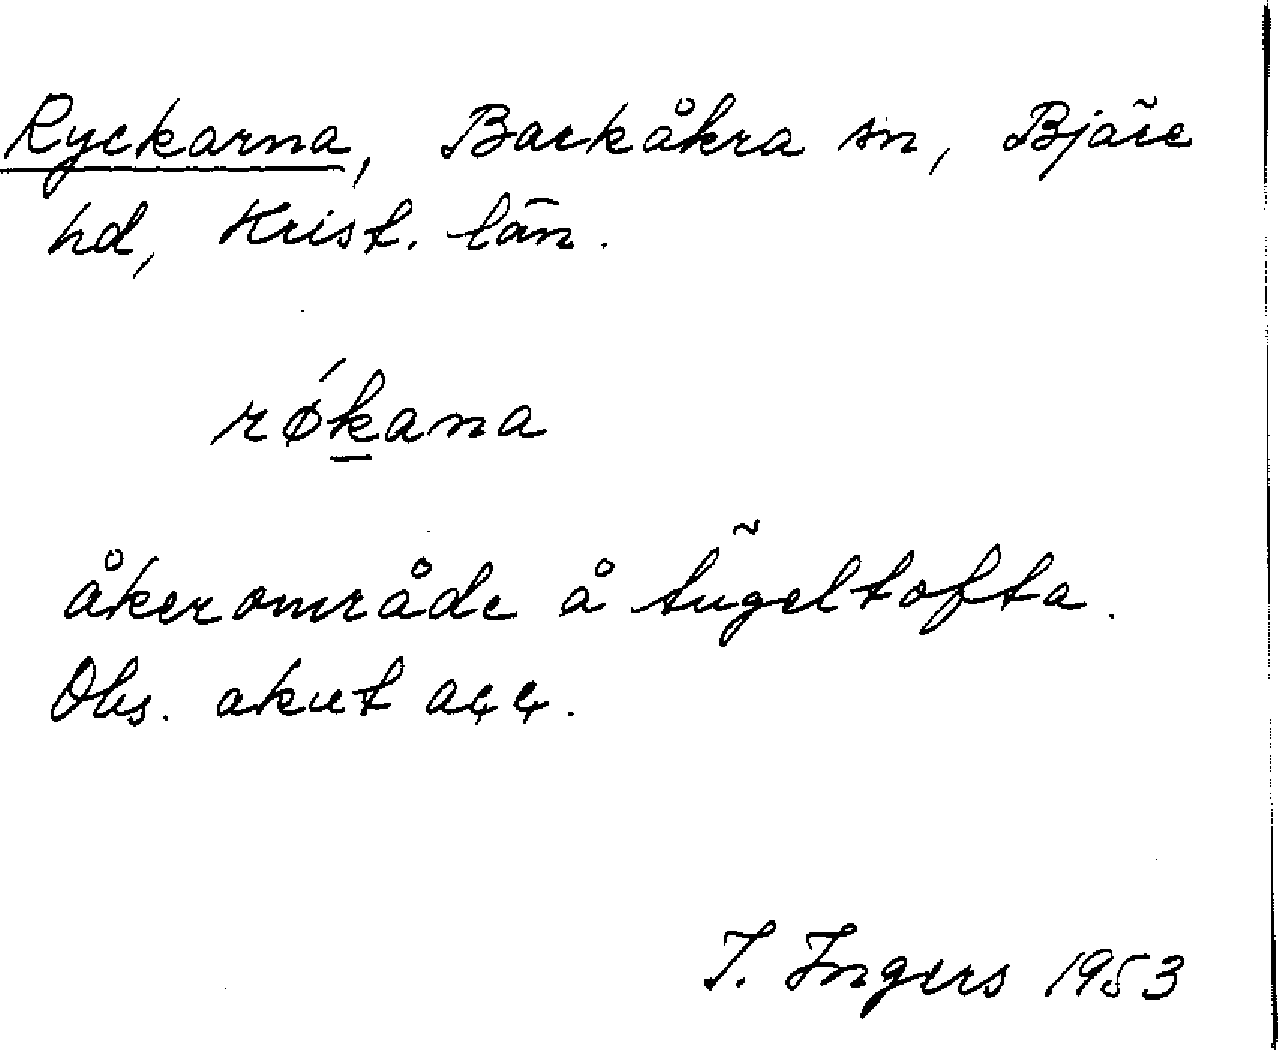 Ryckarna, Barkåkra sn, Bjäre
hd, Krist. län.
røkana
åkerområde å tũgeltofta.
Obs. akut acc.
I. Ingers 1953